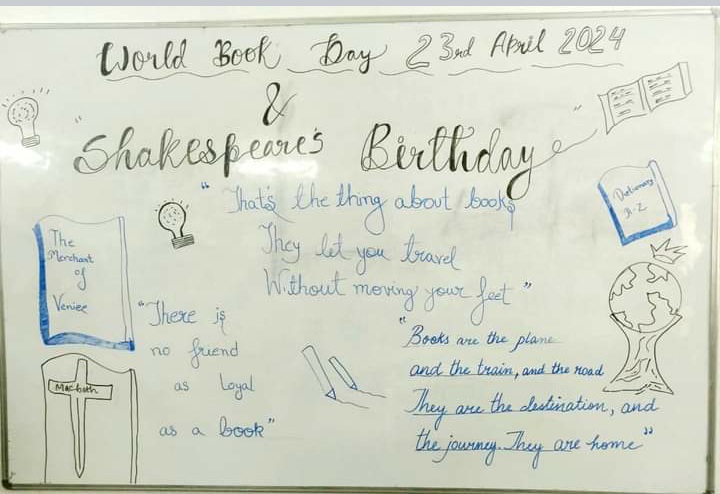 World Book Day 23rd April 2024
&
"Shakespeare's Birthday"
"That's the thing about books
They let you travel
Without moving your feet"
Dictionary
A-Z
The
Merchant
of
Venice
"There is
no friend
as Loyal
as a book"
Macbeth
"Books are the plane
and the train, and the road
They are the destination, and
the journey. They are home"